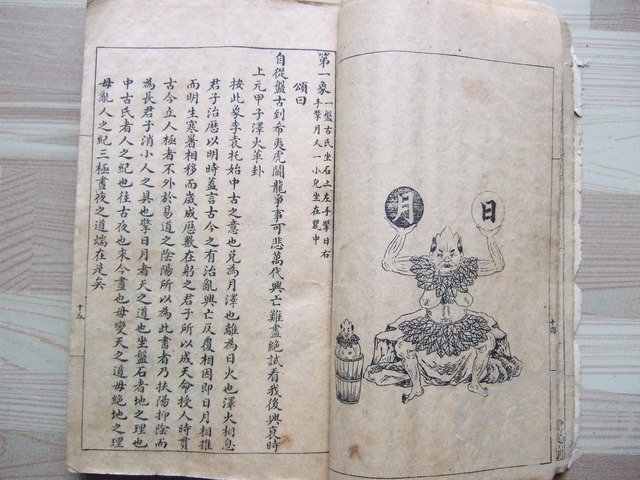 日
月
十四
第一象
一盤古氏坐石上左手擎日右
手擎月又一小兒坐在甕中
頌曰
自從盤古到希夷虎鬭龍爭事可悲萬代興亡難盡絕試看我後興衰時
上元甲子澤火革卦
按此象李袁托始中古之意也兌為月澤也離為日火也澤火相息
君子治歷以明時蓋言古今之有治亂興亡反覆相因即日月相推
而明生寒暑相移而歲成歷數在躬之君子所以成天命授人時貫
古今立人極者不外於易道之陰陽所以為此書者乃扶陽抑陰而
為長君子消小人之具也擎日月者天之道也坐盤石者地之理也
中古民者人之紀也往古夜也來今晝也毋變天之道毋絕地之理
毋亂人之紀三極晝夜之道端在是矣
十五